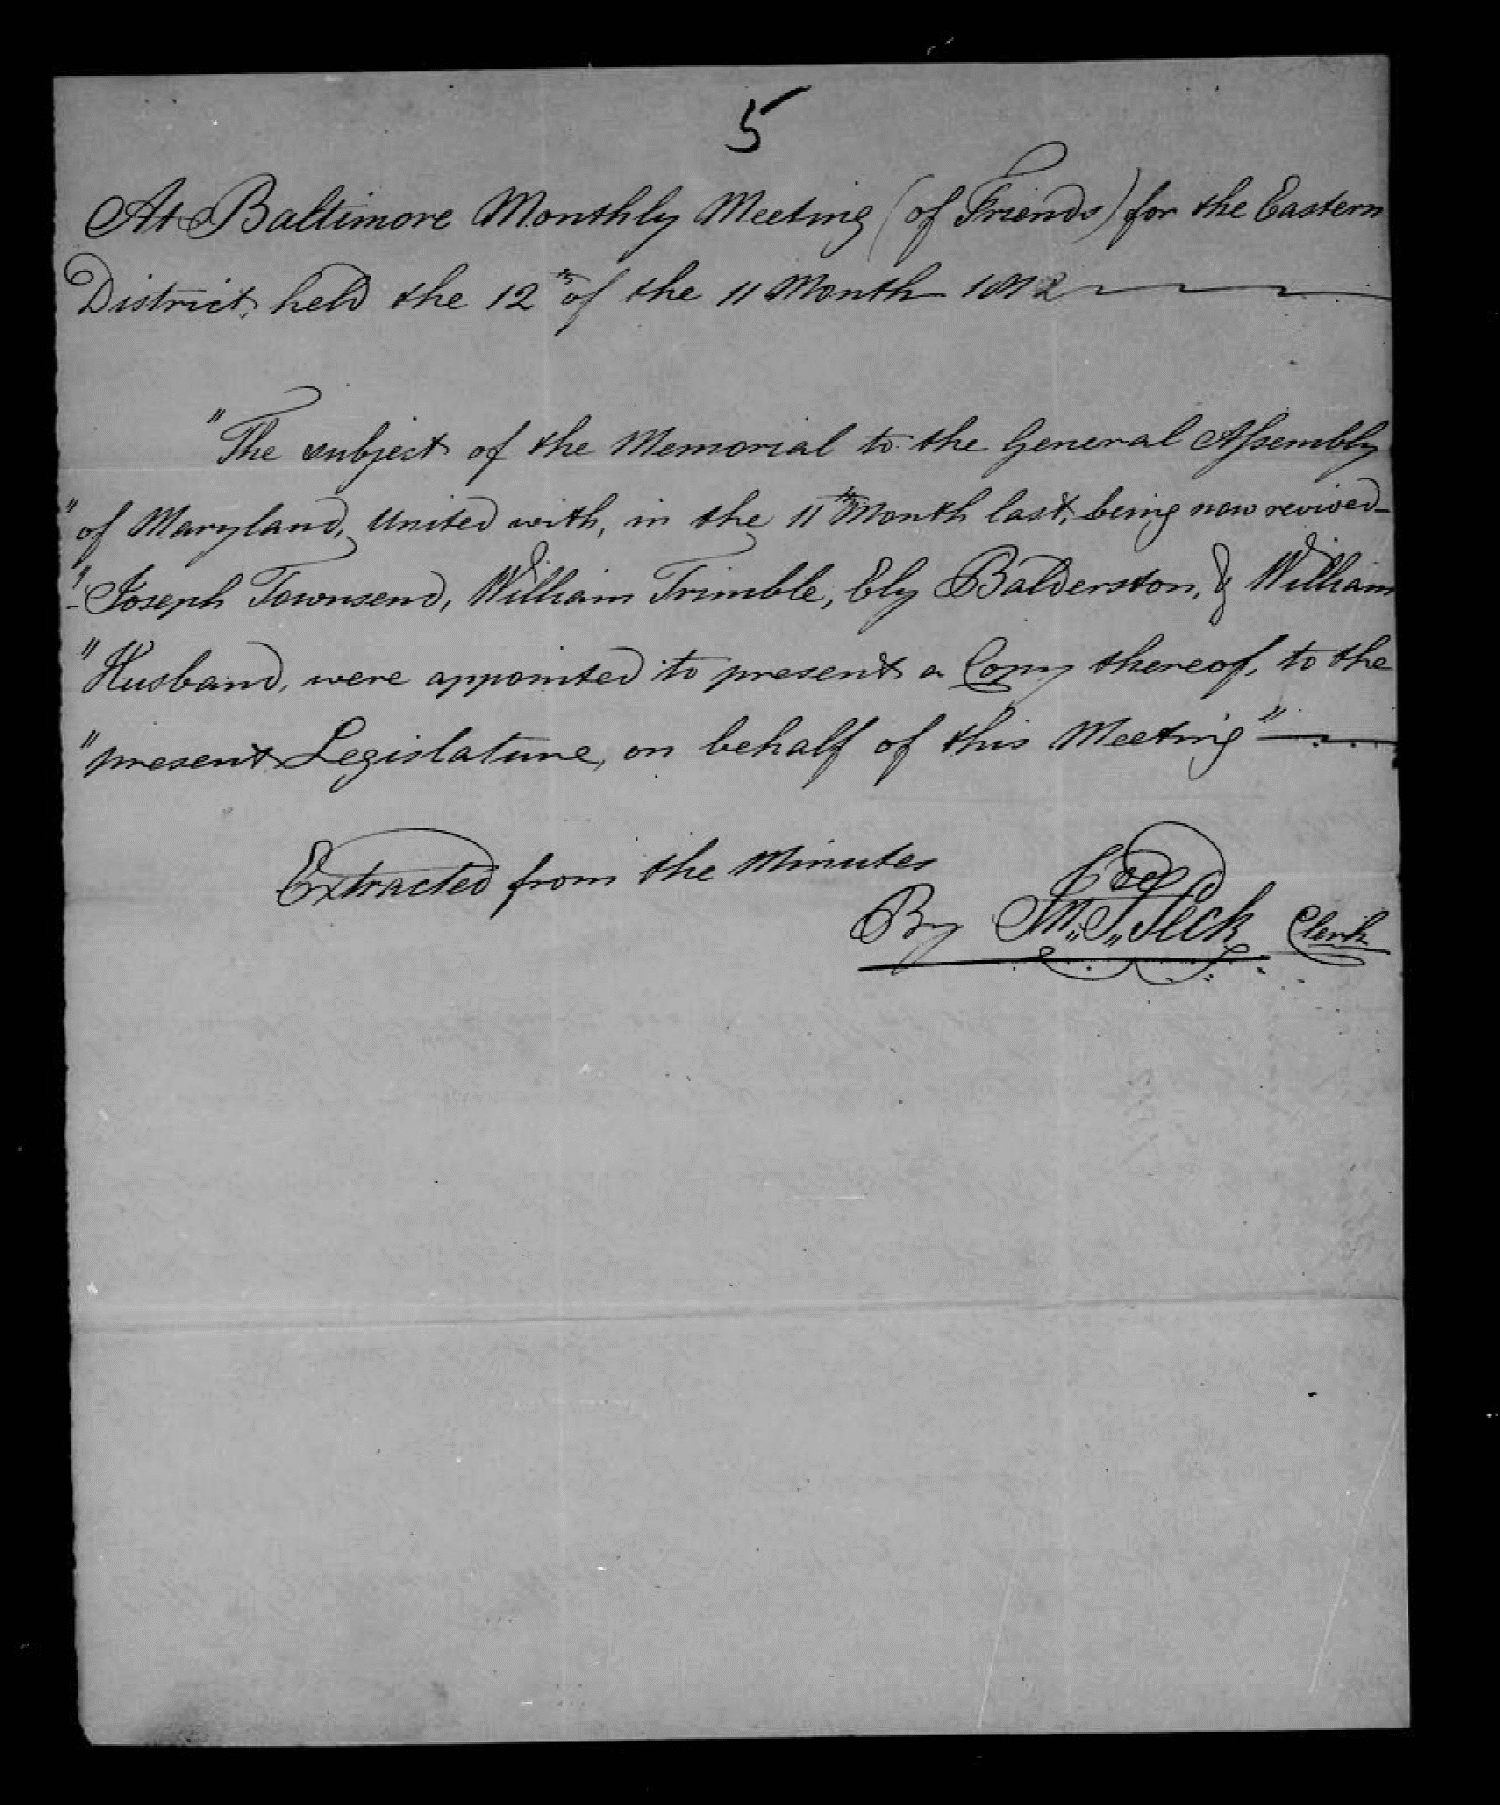 5
At Baltimore Monthly Meeting (of Friends) for the Eastern
District, held the 12th of the 11 Month 1812
"The subject of the Memorial to the General Assembly
" of Maryland, United with, in the 11th Month last, being now revived –
" Joseph Townsend, William Trimble, Ely Balderston, & William
" Husband, were appointed to present a Copy thereof, to the
" present Legislature, on behalf of this Meeting"
Extracted from the Minutes
By Jn. S. Peck Clerk